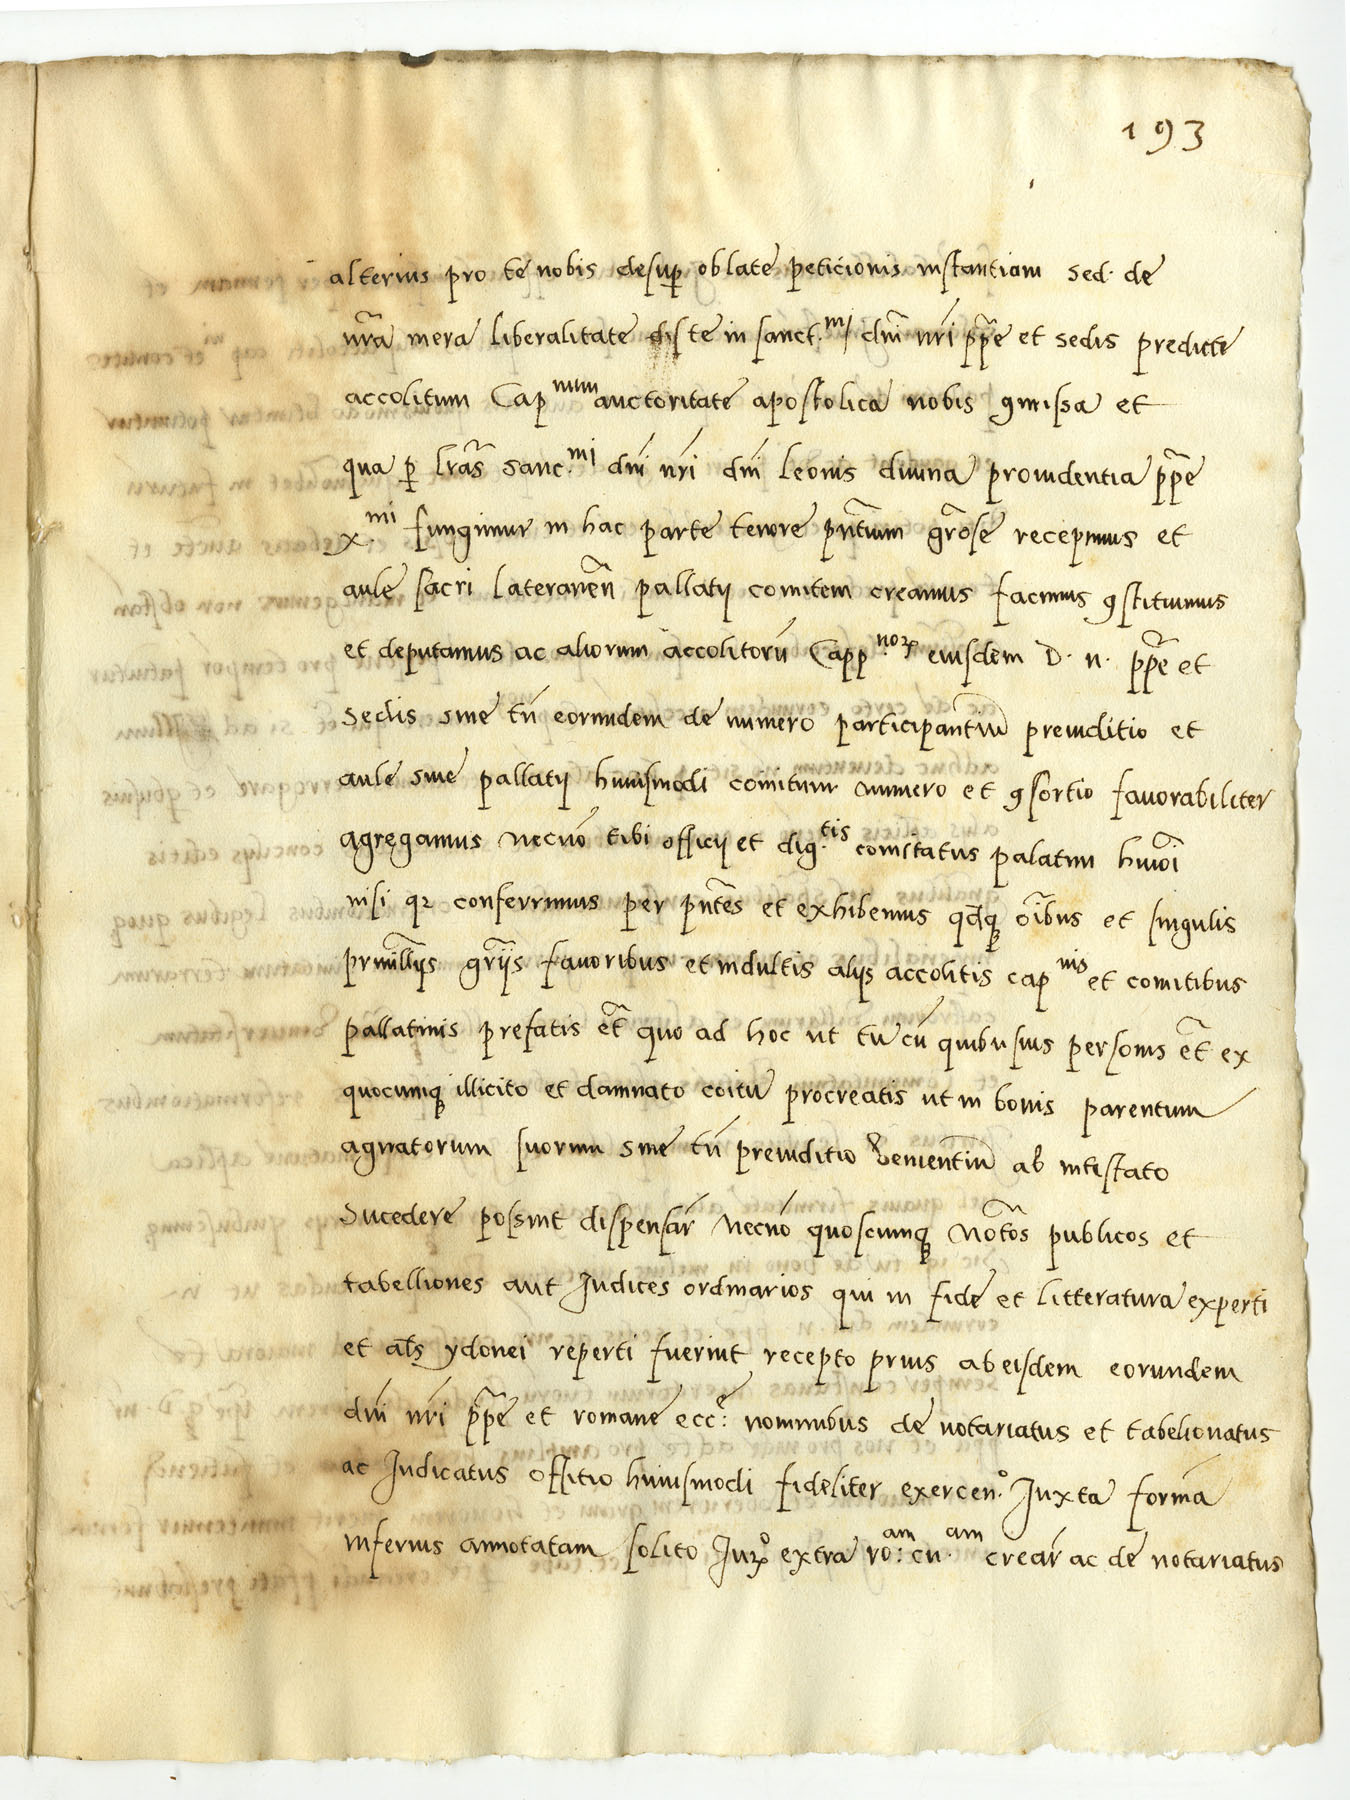 193
alterius pro te nobis desup oblate peticionis instantiam sed de
nr̃a mera liberalitate te in sanct.mi dñi nr̃i pp̃e et sedis predicte
accolitum Capnum auctoritate apostolica nobis ꝯmissa et
qua ꝑ lr̃as sanc.mi dñi nr̃i dñi leonis divina providentia pp̃e
x.mi fungimur in hac parte tenore pñtium gr̃ose recepimus et
aule sacri lateraneñ pallatij comitem creamus facimus ꝯstituimus
et deputamus ac aliorum accolitorũ Capp.noꝝ eiusdem D. n. pp̃e et
sedis sine tñ eorundem de numero participantiũ preiuditio et
aule sive pallatij huiusmodi comitum numero et ꝯsortio favorabiliter
agregamus necnõ tibi officij et dig.tis comitatus palatini huiõi
conferrimus per pñtes et exhibemus õibus et singulis
privillijs gr̃ijs favoribus et indultis alijs accolitis capnis et comitibus
pallatinis prefatis et̃ quo ad hoc ut tu cũ quibusvis personis et̃ ex
quocumqꝫ illicito et damnato coitu procreatis ut in bonis parentum
agnatorum suorum sine tñ preiuditio venientiũ ab intestato
Sucedere possint dispensar̃ necnõ quoscumqꝫ Not̃os publicos et
tabelliones aut Judices ordinarios qui in fide et litteratura experti
et al̃s ydonei reperti fuerint recepto prius ab eisdem eorundem
dñi nr̃i pp̃e et romane ecc.e nominibus de notariatus et tabelionatus
ac Judicatus offitio huiusmodi fideliter exercen.o Juxta formã
inferius annotatam solito Juꝝo extra ro:am cu.am crear̃ ac de notariatus